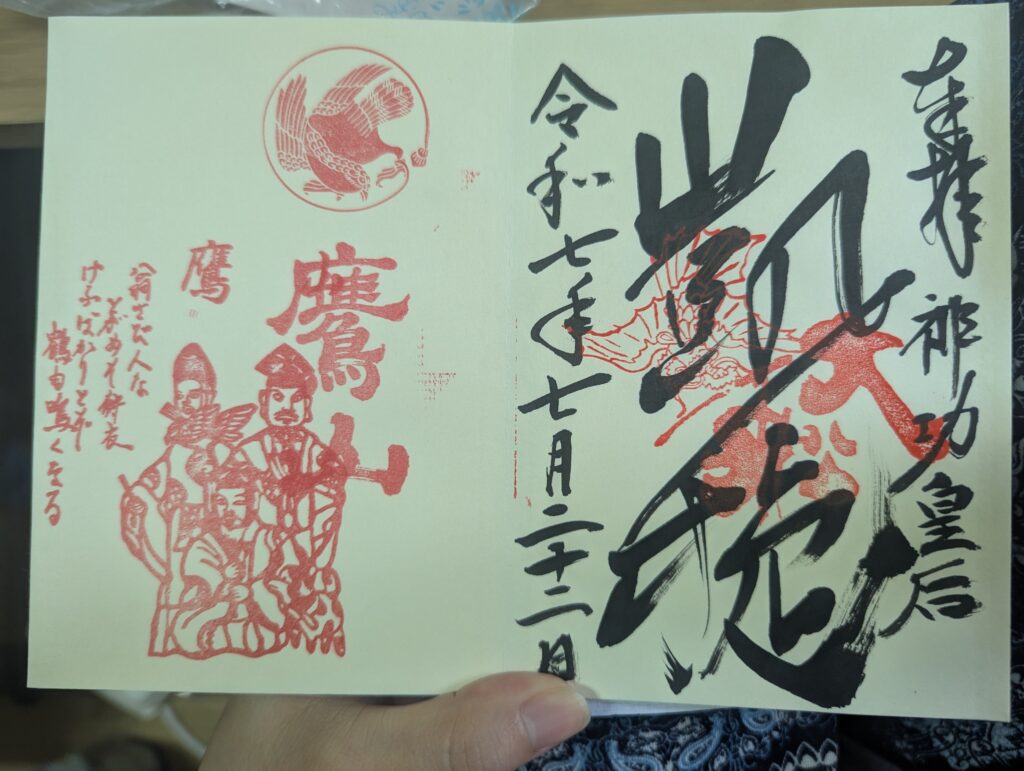 奉拝 神功皇后
凱旋
令和七年七月二十二日
鷹山
鷹
翁さび人な
とがめそ狩衣
けふばかりとぞ
鶴も鳴くなる